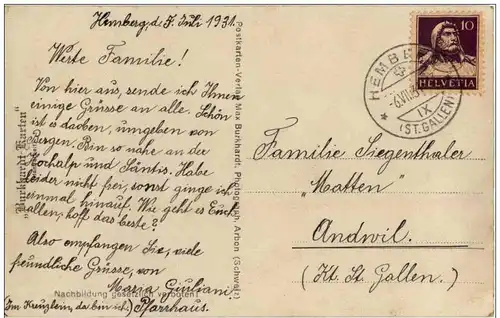 Hemberg, d. 7. Juli 1931.
Werte Familie!
Von hier aus, sende ich Ihnen
einige Grüsse an alle. Schön
ist es daoben, umgeben von
Bergen. Bin so nahe an der
Hochalp und Säntis. Habe
leider nicht frei, sonst ginge ich
einmal hinauf. Wie geht es Euch
allen, hoff das beste?
Also empfangen Sie, viele
freundliche Grüsse, von
Maria Giuliani
Im Kreuzlein, da bin ich) Pfarrhaus.
Nachbildung gesetzlich verboten
„Burkhardt-Karten"
Postkarten-Verlag Max Burkhardt, Photograph, Arbon (Schweiz)
10
HELVETIA
HEMBERG
(ST.GALLEN)
IX
Familie Siegenthaler
„Matten"
Andwil.
(Kt. St. Gallen.)